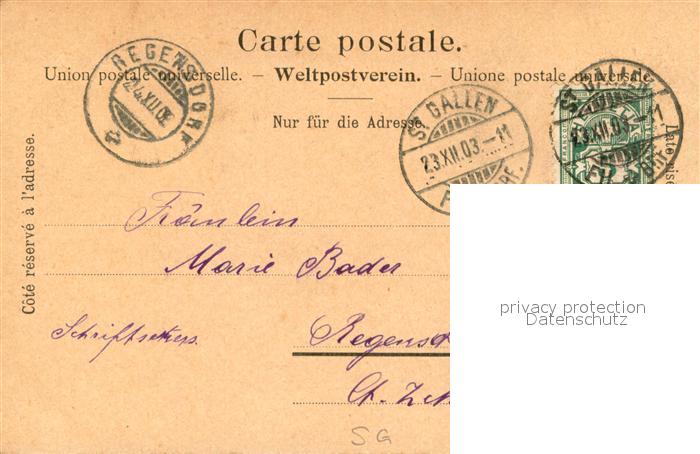 Carte postale.
Union postale universelle. – Weltpostverein. – Unione postale universale.
Nur für die Adresse.
Côté réservé à l'adresse.
REGENSDORF
24.XII.03
ST GALLEN
23.XII.03.–11
ST GALLEN
23.XII.03. 11
Fräulein
Marie Bader
Schriftsetzers.
Regensd
Ct. Z
SG
privacy protection
Datenschutz